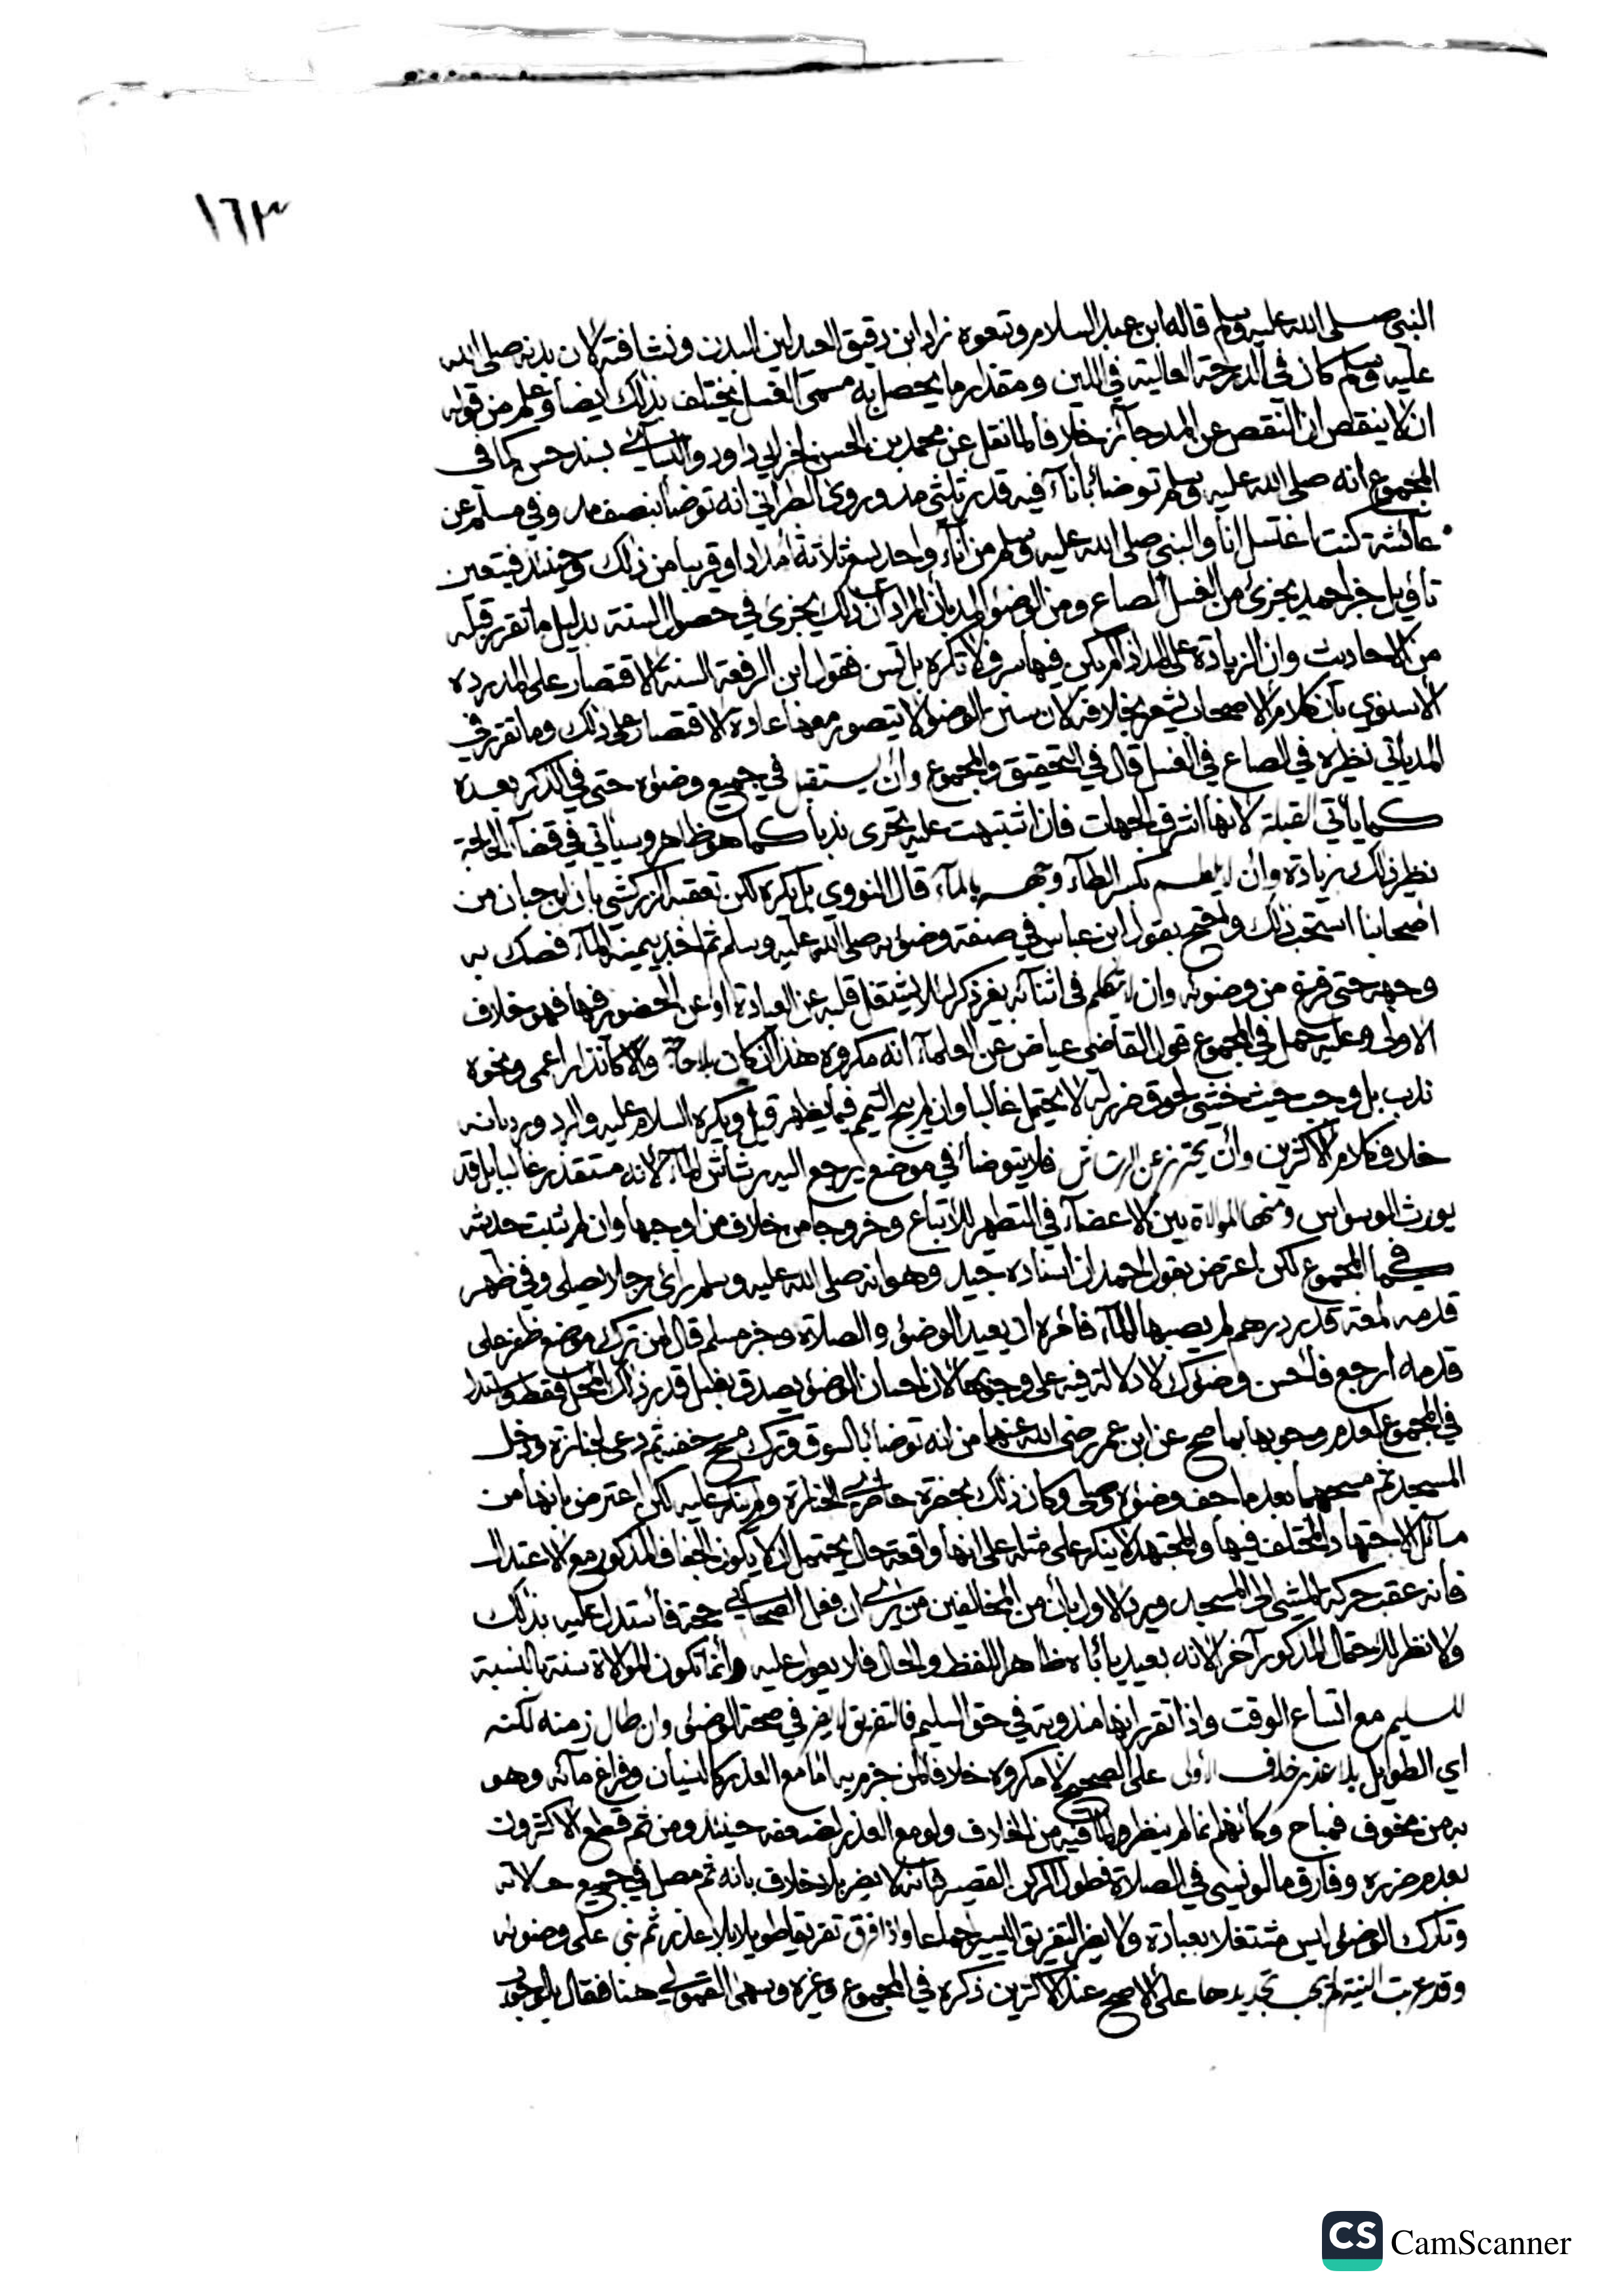 ١٦٣
النبي صلى الله عليه وسلم قاله ابن عبد السلام وتبعوه زاد ابن دقيق العيد لين البدن ونشافته لان بدنه صلى الله
عليه وسلم كان في الدرجة العالية في اللين ومقدار ما يحصل به مسمى الغسل يختلف بذلك ايضا وعلم من قوله
ان لا ينقص ان النقص عن المد جائز خلافا لما نقل عن محمد بن الحسن لخبر ابي داود والنسائي بسند حسن كما في
المجموع انه صلى الله عليه وسلم توضأ باناء فيه قدر ثلثي مد وروى الطبراني انه توضأ بنصف مد وفي مسلم عن
عائشة كنت اغتسل انا والنبي صلى الله عليه وسلم من اناء واحد يسع ثلاثة امداد او قريبا من ذلك وحينئذ فيتعين
تأويل خبر احمد يجزئ من الغسل الصاع ومن الوضوء المد بأن المراد ان ذلك يجزئ في حصول السنة بدليل ما تقرر قبله
من الاحاديث وان الزيادة على المد اذا لم يكن فيها سرف لا تكره بل تسن فقول ابن الرفعة السنة الاقتصار على المد رده
الاسنوي بأن كلام الاصحاب يشعر بخلافه لان سنن الوضوء لا يتصور معها عادة الاقتصار على ذلك وما تقرر في
المد يأتي نظيره في الصاع في الغسل قال في التحقيق والمجموع وأن يستقبل في جميع وضوئه حتى في الذكر بعده
كما يأتي القبلة لانها اشرف الجهات فان اشتبهت عليه تحرى ندبا كما هو ظاهر وسيأتي في قضاء الحاجة
نظير ذلك بزيادة وأن لا يلطم بكسر الطاء وجهه بالماء قال النووي بل يكره لكن تعقبه الزركشي بان ابن حبان من
اصحابنا استحب ذلك واحتج بقول ابن عباس في صفة وضوئه صلى الله عليه وسلم ثم اخذ بيمينه الماء فصك به
وجهه حتى فرغ من وضوئه وان لا يتكلم في اثنائه بغير ذكر لئلا يشتغل قلبه عن العبادة او عن الحضور فيها فهو خلاف
الاولى وعليه حمل في المجموع قول القاضي عياض عن العلماء انه مكروه هذا ان كان بلا حاجة والا كانذار اعمى ونحوه
ندب بل وجب حيث خشي لحوق ضرر له لا يحتمل غالبا وان لم يبح التيمم فيما يظهر قيل ويكره السلام عليه والرد ورد بانه
خلاف كلام الاكثرين وأن يحترز عن الرشاش فلا يتوضأ في موضع يرجع اليه رشاش الماء لانه مستقذر غالبا بل قد
يورث الوسواس ومنها الموالاة بين الاعضاء في التطهر للاتباع وخروجا من خلاف من اوجبها وان لم يثبت حديثه
كما في المجموع لكن اعترض بقول احمد ان اسناده جيد وهو انه صلى الله عليه وسلم رأى رجلا يصلي وفي ظهر
قدمه لمعة قدر درهم لم يصبها الماء فامره ان يعيد الوضوء والصلاة وخبر مسلم قال لمن ترك موضع ظفر على
قدمه ارجع فأحسن وضوئك لا دلالة فيه على وجوبها لان احسان الوضوء يصدق بغسل قدر ذلك المحل فقط واستدل
في المجموع لعدم وجوبها بما صح عن ابن عمر رضي الله عنهما من انه توضأ بالسوق وترك مسح خفيه ثم دعي لجنازة ودخل
المسجد ثم مسحهما بعد ما جف وضوئه وصلى وكان ذلك بحضرة حاضري الجنازة ولم ينكر عليه لكن اعترض بانها من
مسائل الاجتهاد المختلف فيها والمجتهد لا ينكر على مثله على انها واقعة حال يحتمل ان لا يكون الجفاف المذكور مع الاعتدال
فانه عقب حركة المشي الى المسجد ويرد الاول بأن من المخالفين من يرى ان فعل الصحابي حجة فأستدل عليه بذلك
ولا نظر للاحتمال المذكور آخرا لانه بعيد يأباه ظاهر اللفظ والحال فلا يعول عليه وانما تكون الموالاة سنة بالنسبة
للسليم مع اتساع الوقت واذا تقرر انها مندوبة في حق السليم فالتفريق لا يضر في صحة الوضوء وان طال زمنه لكنه
اي الطويل بلا عذر خلاف الأولى على الصحيح لا مكروه خلافا لمن جزم به اما مع العذر كالنسيان وفراغ مائه وهو
بزمن مخوف فمباح وكأنهم انما لم ينظروا لما فيه من الخلاف ولو مع العذر لضعفه حينئذ ومن ثم قطع الاكثرون
بعدم ضرره وفارق ما لو نسي في الصلاة فطول الركن القصير فانه لا يضر بلا خلاف بانه ثم مصل في جميع حالاته
وتارك الوضوء ليس مشتغلا بعبادة ولا يضر التفريق اليسير اجماعا واذا فرق تفريقا طويلا بلا عذر ثم بنى على وضوئه
وقد عزبت النية لم يجب تجديدها على الاصح عند الاكثرين ذكره في المجموع وغيره وسهى القمولي هنا فقال بالوجوب
CS CamScanner